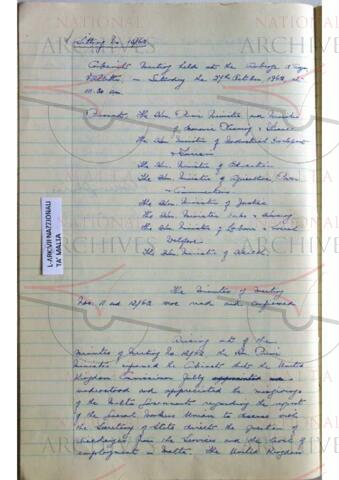 Sitting No. 14/62
Cabinet Meeting held at the Auberge d'Aragon
Valletta on Saturday the 27th October 1962 at
10.30 am
Present: The Hon. Prime Minister and Minister
of Economic Planning & Finance
The Hon. Minister of Industrial Development
& Tourism
The Hon. Minister of Education
The Hon. Minister of Agriculture, Power
& Communications
The Hon. Minister of Justice
The Hon. Minister Works & Housing
The Hon. Minister of Labour & Social
Welfare
The Hon. Minister of Health.
The Minutes of Meeting
Nos. 11 and 12/62 were read and confirmed
Arising out of the
minutes of Meeting No. 12/62 the Hon Prime
Minister informed the Cabinet that the United
Kingdom Commissioner fully
understood and appreciated the misgivings
of the Malta Government regarding the request
of the General Workers Union to discuss with
the Secretary of State direct the question of
discharges from the Services and the level of
employment in Malta. The United Kingdom
L-ARKIVJI NAZZJONALI
TA' MALTA
NATIONAL
ARCHIVES